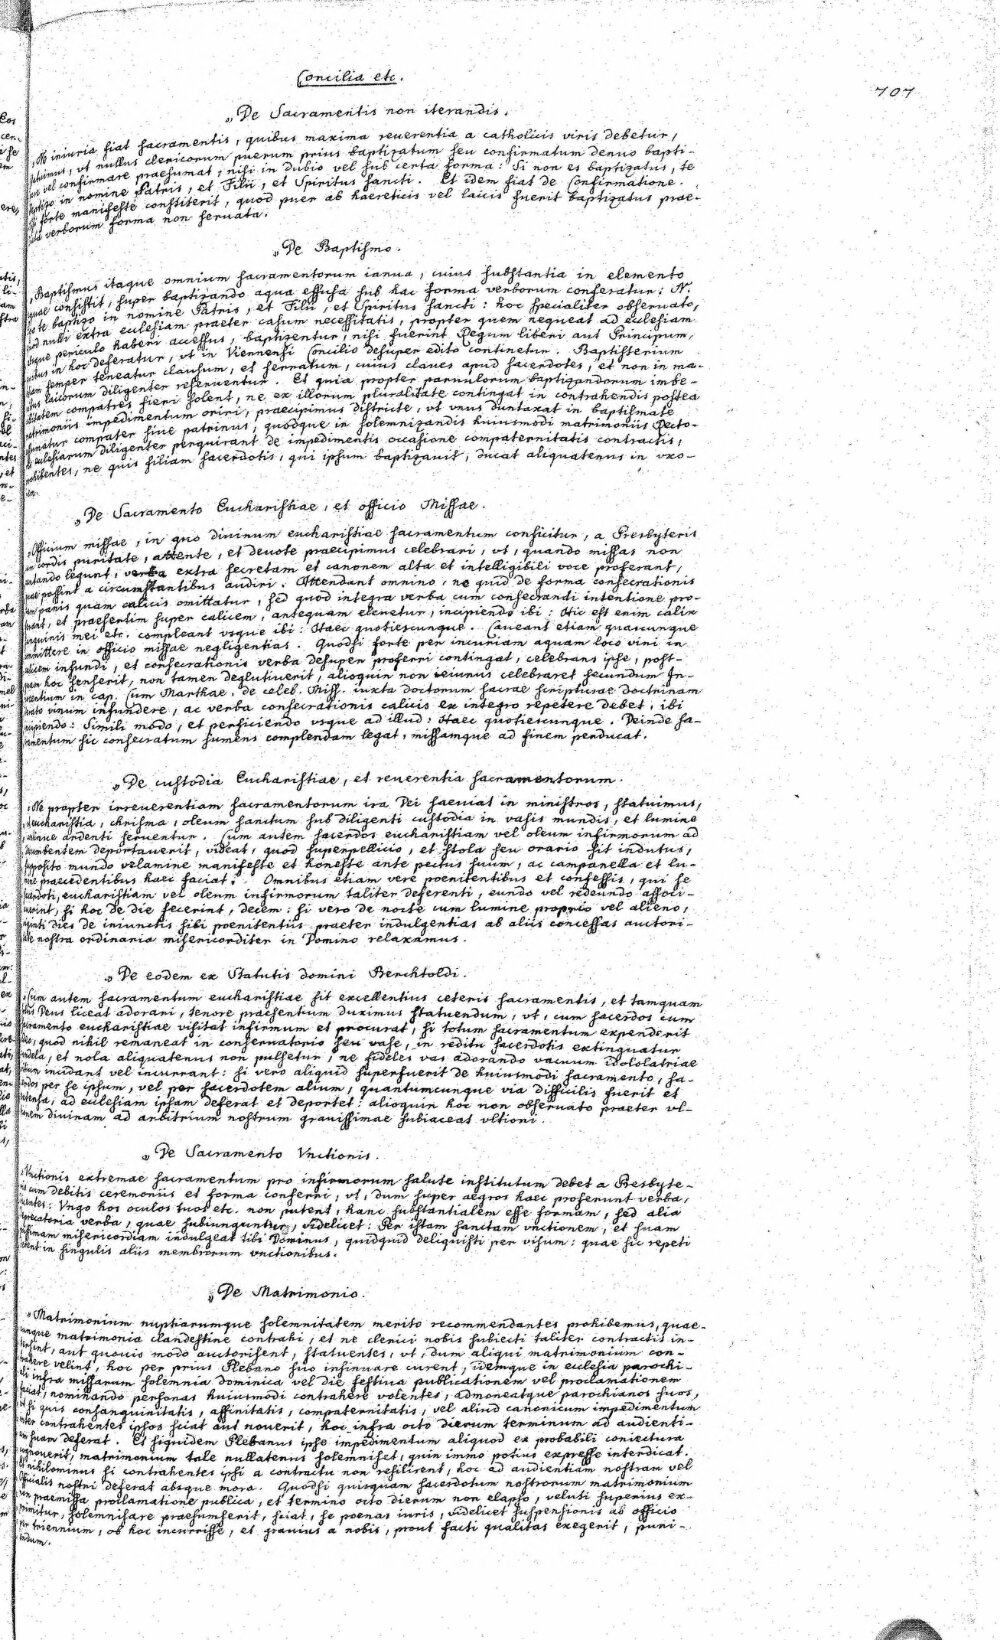 Concilia etc.
707
„De Sacramentis non iterandis.
„Ne iniuria fiat sacramentis, quibus maxima reuerentia a catholicis viris debetur,
, vt nullus clericorum puerum prius baptizatum seu confirmatum denuo bapti-
vel confirmare praesumat, nisi in dubio vel sub certa forma: Si non es baptizatus, te
baptizo in nomine Patris, et Filii, et Spiritus sancti. Et idem fiat de Confirmatione.
Si forte manifeste constiterit, quod puer ab haereticis vel laicis fuerit baptizatus prae-
verborum forma non seruata.
„De Baptismo.
„Baptismus itaque omnium sacramentorum ianua, cuius substantia in elemento
quae consistit, super baptizando aqua effusa sub hac forma verborum conferatur: N.
ego te baptizo in nomine Patris, et Filii, et Spiritus sancti: hoc specialiter obseruato,
quod nulli extra ecclesiam praeter casum necessitatis, propter quem nequeat ad ecclesiam
absque periculo haberi accessus, baptizentur, nisi fuerint Regum liberi aut Principum,
quibus in hoc deferatur, vt in Viennensi Concilio desuper edito continetur. Baptisterium
semper teneatur clausum, et serratum, cuius claues apud sacerdotes, et non in ma-
nibus laicorum diligenter reseruentur. Et quia propter paruulorum baptizandorum imbe-
cillitatem compatres fieri solent, ne ex illorum pluralitate contingat in contrahendis postea
matrimoniis impedimentum oriri, praecipimus districte, vt vnus duntaxat in baptismate
compater siue patrinus, quodque in solemnizandis huiusmodi matrimoniis Recto-
res ecclesiarum diligenter perquirant de impedimentis occasione compaternitatis contractis;
prohibentes, ne quis filiam sacerdotis, qui ipsum baptizauit, ducat aliquatenus in vxo-
rem.
„De Sacramento Eucharistiae, et officio Missae.
„Officium missae, in quo diuinum eucharistiae sacramentum conficitur, a Presbyteris
in cordis puritate, attente, et deuote praecipimus celebrari, vt, quando missas non
cantando legunt, verba extra secretam et canonem alta et intelligibili voce proferant,
possint a circumstantibus audiri. Attendant omnino, ne quid de forma consecrationis
tam panis quam calicis omittatur, sed quod integra verba cum consecrandi intentione pro-
ferant, et praesertim super calicem, antequam eleuetur, incipiendo ibi: Hic est enim calix
sanguinis mei etc. compleant vsque ibi: Haec quotiescunque. Caueant etiam quamcunque
committere in officio missae negligentias. Quodsi forte per incuriam aquam loco vini in
calicem infundi, et consecrationis verba desuper proferri contingat, celebrans ipse, post-
quam hoc senserit, non tamen deglutiuerit, alioquin non ieiunus celebraret secundum In-
nocentium in cap. Cum Marthae, de celeb. Miss. iuxta doctorum sacrae scripturae doctrinam
vinum infundere, ac verba consecrationis calicis ex integro repetere debet, ibi
incipiendo: Simili modo, et perficiendo vsque ad illud: Haec quotiescunque. Deinde sa-
cramentum sic consecratum sumens complendam legat, missamque ad finem perducat.
„De custodia Eucharistiae, et reuerentia sacramentorum.
„Ne propter irreuerentiam sacramentorum ira Dei saeuiat in ministros, statuimus,
eucharistia, chrisma, oleum sanctum sub diligenti custodia in vasis mundis, et lumine
ardenti seruentur. Cum autem sacerdos eucharistiam vel oleum infirmorum ad
decumbentem deportauerit, videat, quod superpellicio, et stola seu orario sit indutus,
supposito mundo velamine manifeste et honeste ante pectus suum, ac campanella et lu-
mine praecedentibus haec faciat. Omnibus etiam vere poenitentibus et confessis, qui se
sacerdoti, eucharistiam vel oleum infirmorum taliter deferenti, eundo vel redeundo associ-
auerint, si hoc de die fecerint, decem: si vero de nocte cum lumine proprio vel alieno,
viginti dies de iniunctis sibi poenitentiis praeter indulgentias ab aliis concessas auctori-
tate nostra ordinaria misericorditer in Domino relaxamus.
„De eodem ex Statutis domini Berchtoldi.
„Cum autem sacramentum eucharistiae sit excellentius ceteris sacramentis, et tamquam
Deus liceat adorari, tenore praesentium duximus statuendum, vt, cum sacerdos cum
sacramento eucharistiae visitat infirmum et procurat, si totum sacramentum expenderit
quod nihil remaneat in conseruatorio seu vase, in reditu sacerdotis extinguatur
candela, et nola aliquatenus non pulsetur, ne fideles vas adorando vacuum idololatriae
vitium incidant vel incurrant: si vero aliquid superfuerit de huiusmodi sacramento, sa-
cerdos per se ipsum, vel per sacerdotem alium, quantumcunque via difficilis fuerit et
, ad ecclesiam ipsam deferat et deportet: alioquin hoc non obseruato praeter vl-
tionem diuinam ad arbitrium nostrum grauissimae subiaceat vltioni.
„De Sacramento Vnctionis.
„Vnctionis extremae sacramentum pro infirmorum salute institutum debet a Presbyte-
ris cum debitis ceremoniis et forma conferri, vt, dum super aegros haec proferunt verba,
: Vngo hos oculos tuos etc. non putent, hanc substantialem esse formam, sed alia
deprecatoria verba, quae subiunguntur, videlicet: Per istam sanctam vnctionem, et suam
piissimam misericordiam indulgeat tibi Dominus, quidquid deliquisti per visum: quae sic repeti
debent in singulis aliis membrorum vnctionibus.
„De Matrimonio.
„Matrimonium nuptiarumque solemnitatem merito recommendantes prohibemus, quae-
cunque matrimonia clandestine contrahi, et ne clerici nobis subiecti taliter contractis in-
tersint, aut quouis modo auctorisent, statuentes, vt, dum aliqui matrimonium con-
trahere velint, hoc per prius Plebano suo insinuare curent, idemque in ecclesia parochi-
ali infra missarum solemnia dominica vel die festiua publicationem vel proclamationem
faciat, nominando personas huiusmodi contrahere volentes, admoneatque parochianos suos,
vt si quis consanguinitatis, affinitatis, compaternitatis, vel aliud canonicum impedimentum
inter contrahentes ipsos sciat aut nouerit, hoc infra octo dierum terminum ad audienti-
am suam deferat. Et siquidem Plebanus ipse impedimentum aliquod ex probabili coniectura
cognouerit, matrimonium tale nullatenus solemniset, quin immo potius expresse interdicat.
Et nihilominus si contrahentes ipsi a contractu non resilirent, hoc ad audientiam nostram vel
Officialis nostri deferat absque mora. Quodsi quisquam sacerdotum nostrorum matrimonium
non praemissa proclamatione publica, et termino octo dierum non elapso, veluti superius ex-
primitur, solemnisare praesumserit, sciat, se poenas iuris, videlicet suspensionis ab officio
per triennium, ob hoc incurrisse, et grauius a nobis, prout facti qualitas exegerit, puni-
endum.